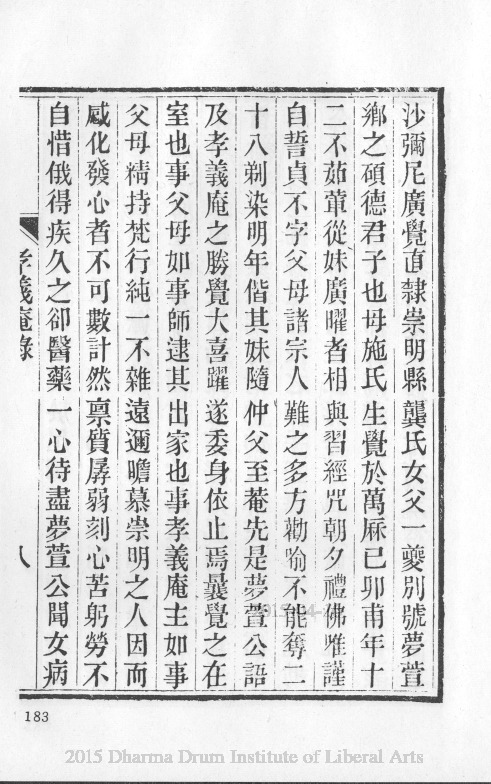 沙彌尼廣覺直隸崇明縣龔氏女父一夔別號夢萱
鄉之碩德君子也母施氏生覺於萬厤己卯甫年十
二不茹葷從妹廣曜者相與習經咒朝夕禮佛唯謹
自誓貞不字父母諸宗人難之多方勸喻不能奪二
十八剃染明年偕其妹隨仲父至菴先是夢萱公語
及孝義庵之勝覺大喜躍遂委身依止焉曩覺之在
室也事父母如事師逮其出家也事孝義庵主如事
父母精持梵行純一不雜遠邇瞻慕崇明之人因而
感化發心者不可數計然禀質孱弱刻心苦躬勞不
自惜俄得疾久之卻醫藥一心待盡夢萱公聞女病
孝義庵錄
八
183
2015 Dharma Drum Institute of Liberal Arts